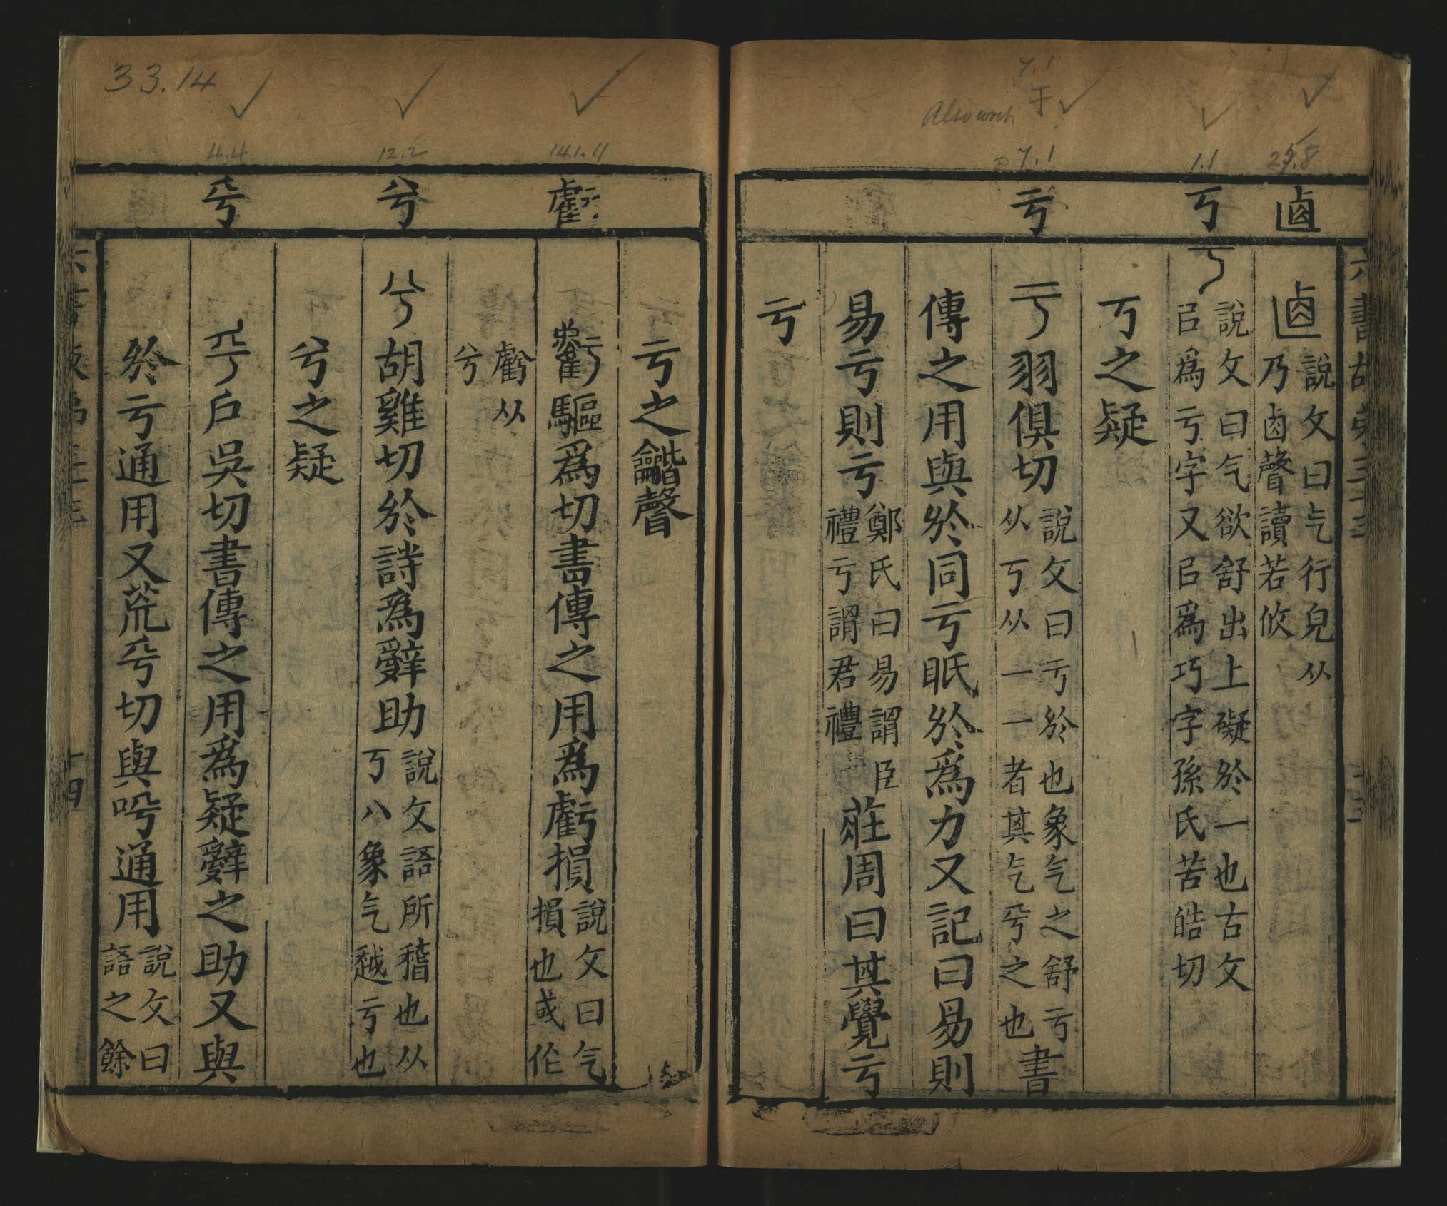 33.14
Also work
于
7.1
7.1
1.1
29.8
14.1.11
12.2
4.4
卥
丂
亏
虧
兮
乎
說文曰气行皃从
乃卥聲讀若攸
丂
說文曰气欲舒出上礙於一也古文
㠯爲亏字又㠯爲巧字孫氏苦皓切
丂之疑
亏羽俱切
說文曰亏於也象气之舒亏
从丂从一一者其气乎之也
書
傳之用與於同亏眂於爲力又記曰易則
易亏則亏
鄭氏曰易謂臣
禮亏謂君禮
莊周曰其覺亏
亏
亏之龤聲
虧驅爲切書傳之用爲虧損
說文曰气
損也或作
虧从
兮
兮胡雞切於詩爲辭助
說文語所稽也从
丂八象气越亏也
兮之疑
乎戶吳切書傳之用爲疑辭之助又與
於亏通用又荒乎切與呼通用
說文曰
語之餘
十四